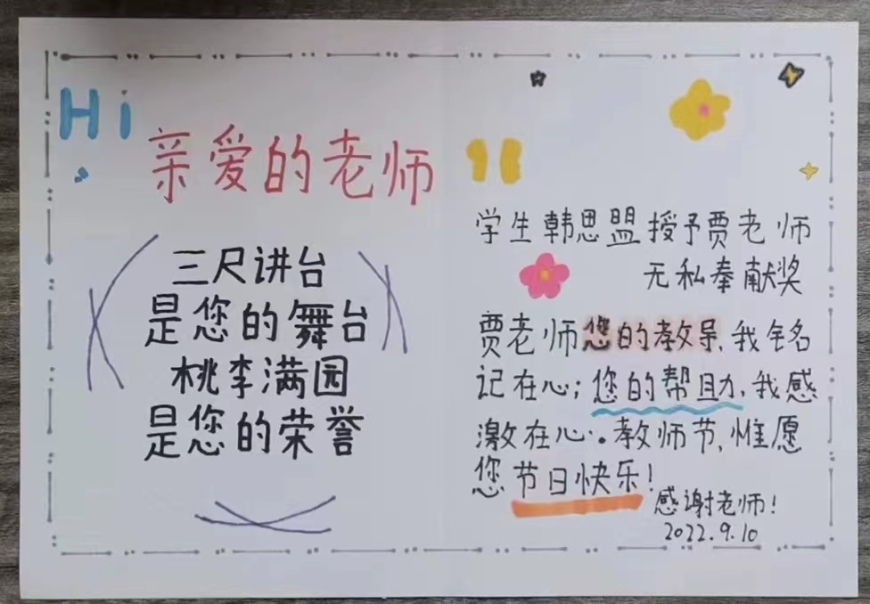 Hi
亲爱的老师
三尺讲台
是您的舞台
桃李满园
是您的荣誉
学生韩思盟授予贾老师
无私奉献奖
贾老师您的教导,我铭
记在心;您的帮助,我感
激在心。教师节,惟愿
您节日快乐!
感谢老师!
2022.9.10